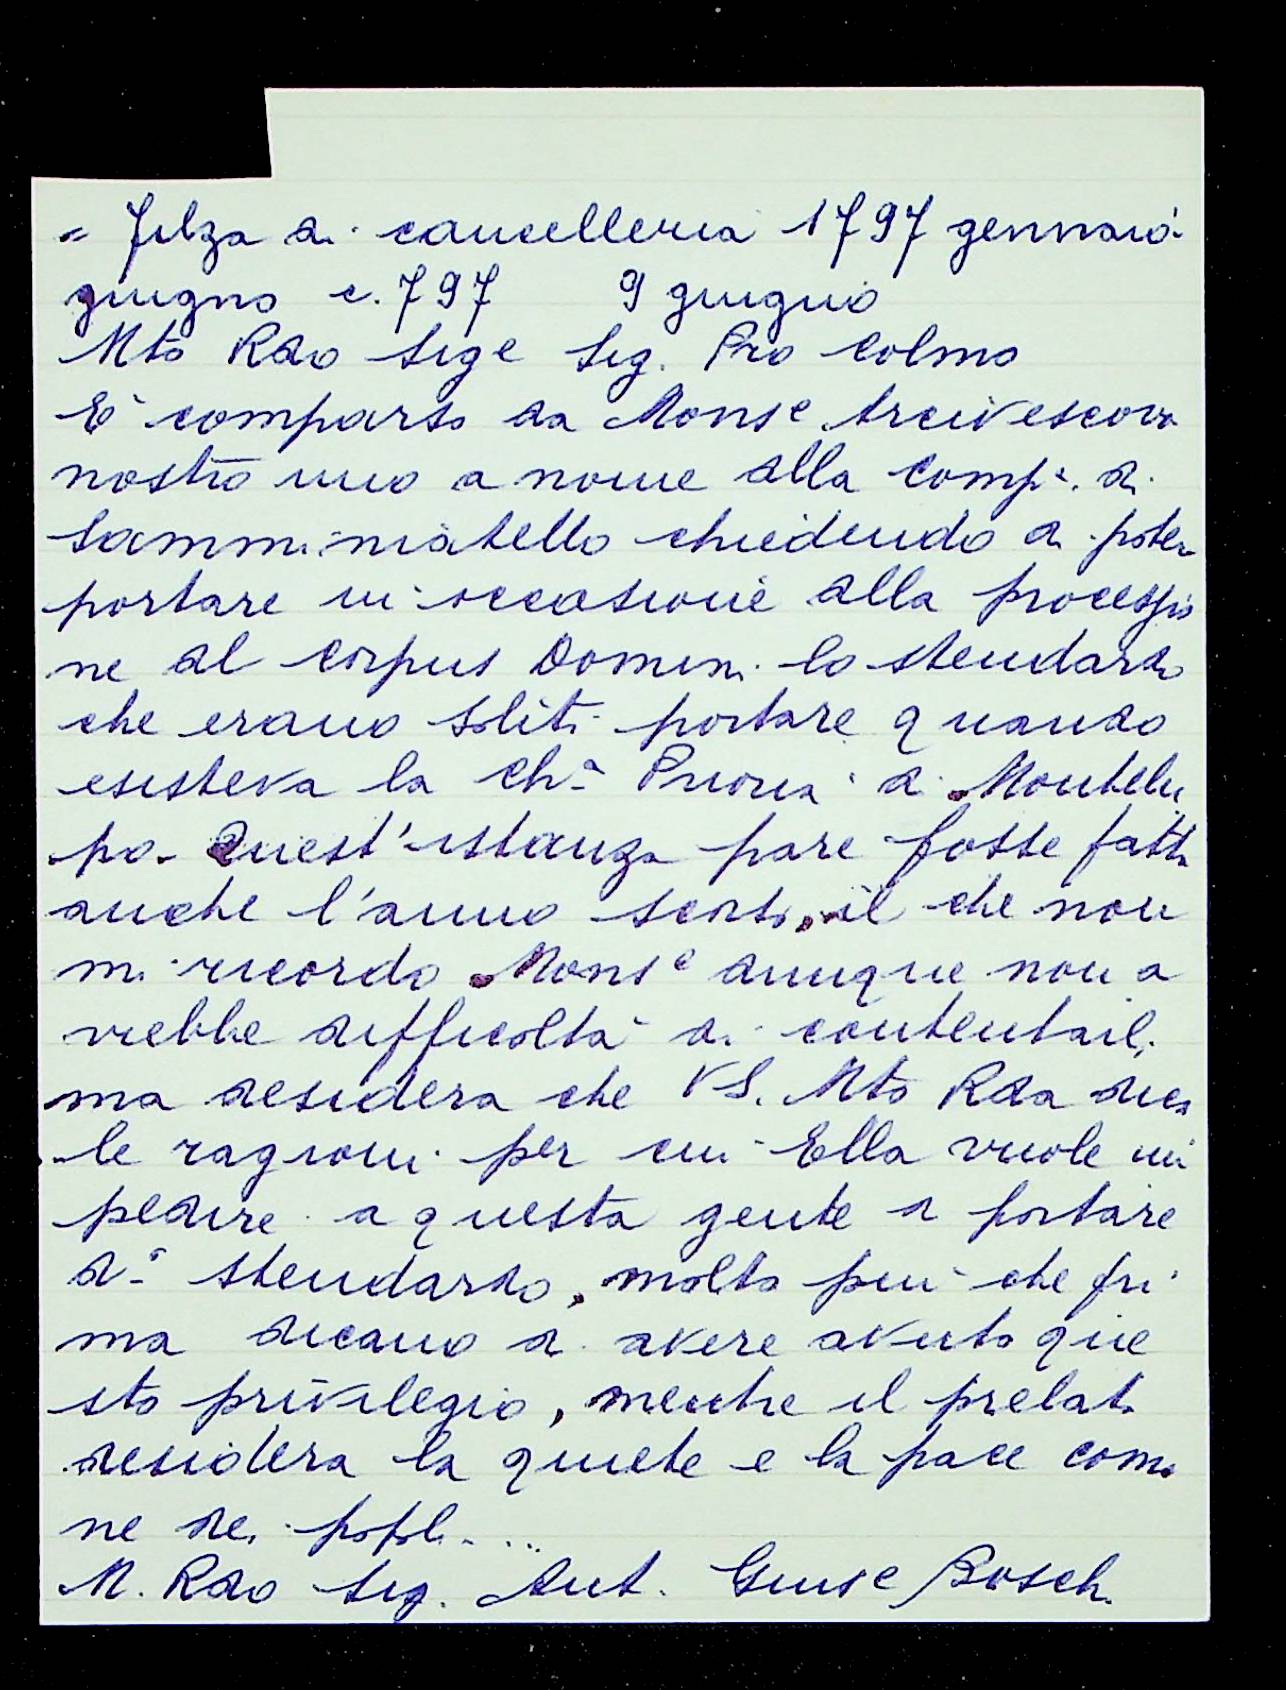 = Filza di cancelleria 1797 gennaio
giugno c. 797 9 giugno
Mto Rdo Sige Sig. Pro Colmo
È comparso da Monse Arcivescovo
nostro uno a nome della Compa. di
Samminiatello chiedendo di poter
portare in occasione della processio
ne del Corpus Domini lo stendardo
che erano soliti portare quando
esisteva la Cha Prioria di Montelu
po. Quest'istanza pare fosse fatta
anche l'anno scorso, il che non
mi ricordo Monse dunque non a
vrebbe difficoltà di contentarli
ma desidera che VS. Mto Rda dica
le ragioni per cui Ella vuole im
pedire a questa gente di portare
do stendardo, molto più che pri
ma dicano di avere avuto que
sto privilegio, mentre il prelato
desidera la quiete e la pace comu
ne dei popoli. ...
M. Rdo Sig. Ant. Giuse Boschi